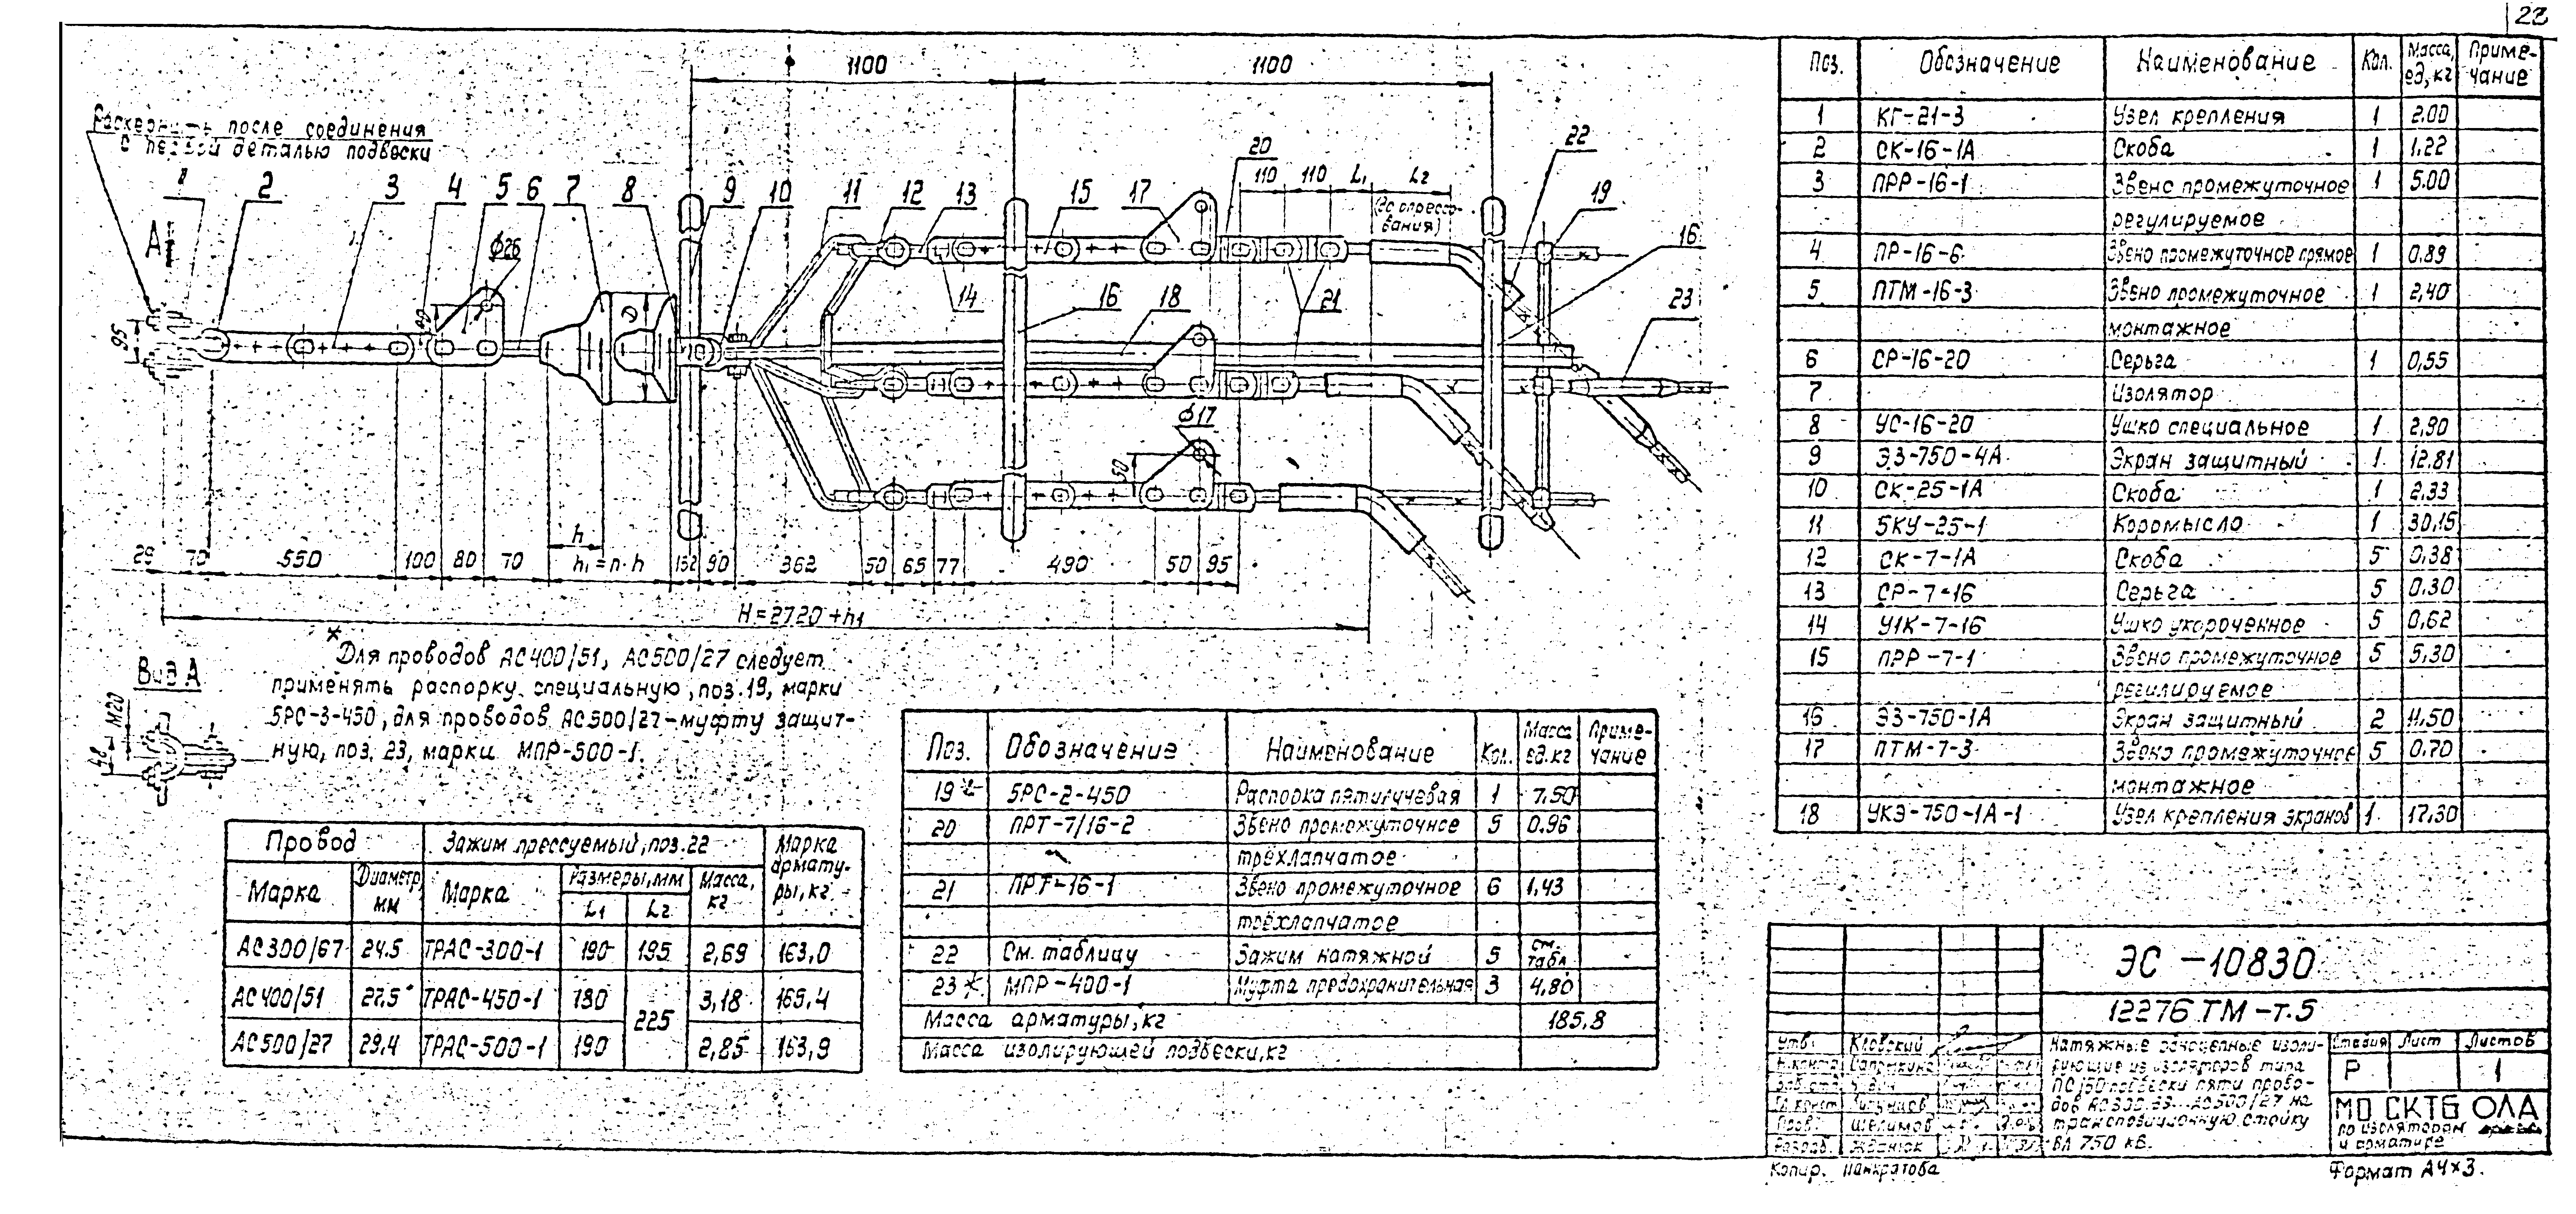 22
1100 1100
Раскернить после соединения
с первой деталью подвески
1 2 3 4 5 6 7 8 9 10 11 12 13 15 17 20 22 19
110 110 L1 L2
(до опрессо-
вания)
А
ф26
14 16 18 21 16 23
95 80 D
ф17
50
h
29 70 550 100 80 70 h1=n·h 132 90 362 50 65 77 490 50 95
H=2720+h1
Вид А
М20
48
*Для проводов АС400/51, АС500/27 следует
применять распорку специальную, поз.19, марки
5РС-3-450, для проводов АС500/27-муфту защит-
ную, поз. 23, марки МПР-500-1.
Провод Зажим прессуемый, поз.22 Марка
армату-
ры, кг
Марка Диаметр, мм Марка Размеры, мм Масса, кг
L1 L2
АС300/67 24.5 ТРАС-300-1 190 195 2,69 163,0
АС400/51 27.5 ТРАС-450-1 180 225 3,18 165,4
АС500/27 29,4 ТРАС-500-1 190 2,85 163,9
Поз. Обозначение Наименование Кол. Масса ед.кг Приме-чание
19* 5РС-2-450 Распорка пятилучевая 1 7.50
20 ПРТ-7/16-2 Звено промежуточное 5 0.96
трёхлапчатое
21 ПРТ-16-1 Звено промежуточное 6 1,43
трёхлапчатое
22 См. таблицу Зажим натяжной 5 см. табл.
23* МПР-400-1 Муфта предохранительная 3 4,80
Масса арматуры, кг 185,8
Масса изолирующей подвески, кг
Поз. Обозначение Наименование Кол. Масса, ед, кг Приме-чание
1 КГ-21-3 Узел крепления 1 2.00
2 СК-16-1А Скоба 1 1.22
3 ПРР-16-1 Звено промежуточное 1 5.00
регулируемое
4 ПР-16-6 Звено промежуточное прямое 1 0.89
5 ПТМ-16-3 Звено промежуточное 1 2,40
монтажное
6 СР-16-20 Серьга 1 0,55
7 Изолятор
8 УС-16-20 Ушко специальное 1 2,90
9 ЭЗ-750-4А Экран защитный 1 12.81
10 СК-25-1А Скоба 1 2.33
11 5КУ-25-1 Коромысло 1 30,15
12 СК-7-1А Скоба 5 0,38
13 СР-7-16 Серьга 5 0.30
14 У1К-7-16 Ушко укороченное 5 0,62
15 ПРР-7-1 Звено промежуточное 5 5,30
регулируемое
16 ЭЗ-750-1А Экран защитный 2 11.50
17 ПТМ-7-3 Звено промежуточное 5 0.70
монтажное
18 УКЭ-750-1А-1 Узел крепления экранов 1 17,30
ЭС-10830
12276 ТМ-т.5
Утв. Кловский
Н.контр. Сапрыкина
Пров. Шелимов
Разраб.
Натяжные одноцепные изоли-
рующие из изоляторов типа
подвески пяти прово-
АС500/27 на
транспозиционную стойку
ВЛ 750 кВ.
Стадия Лист Листов
Р 1
МО СКТБ ОЛА
по изоляторам
и арматуре
Копир. Панкратова
Формат А4×3.